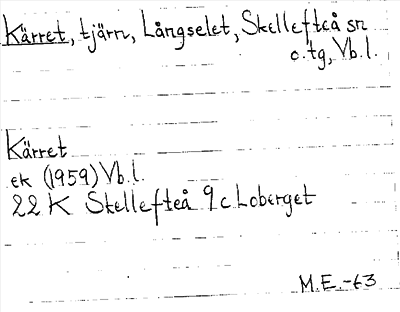 Kärret, tjärn, Långselet, Skellefteå sn
o. tg, Vb. l.
Kärret
ek (1959) Vb. l.
22 K Skellefteå 9 c Loberget
M. E. -63